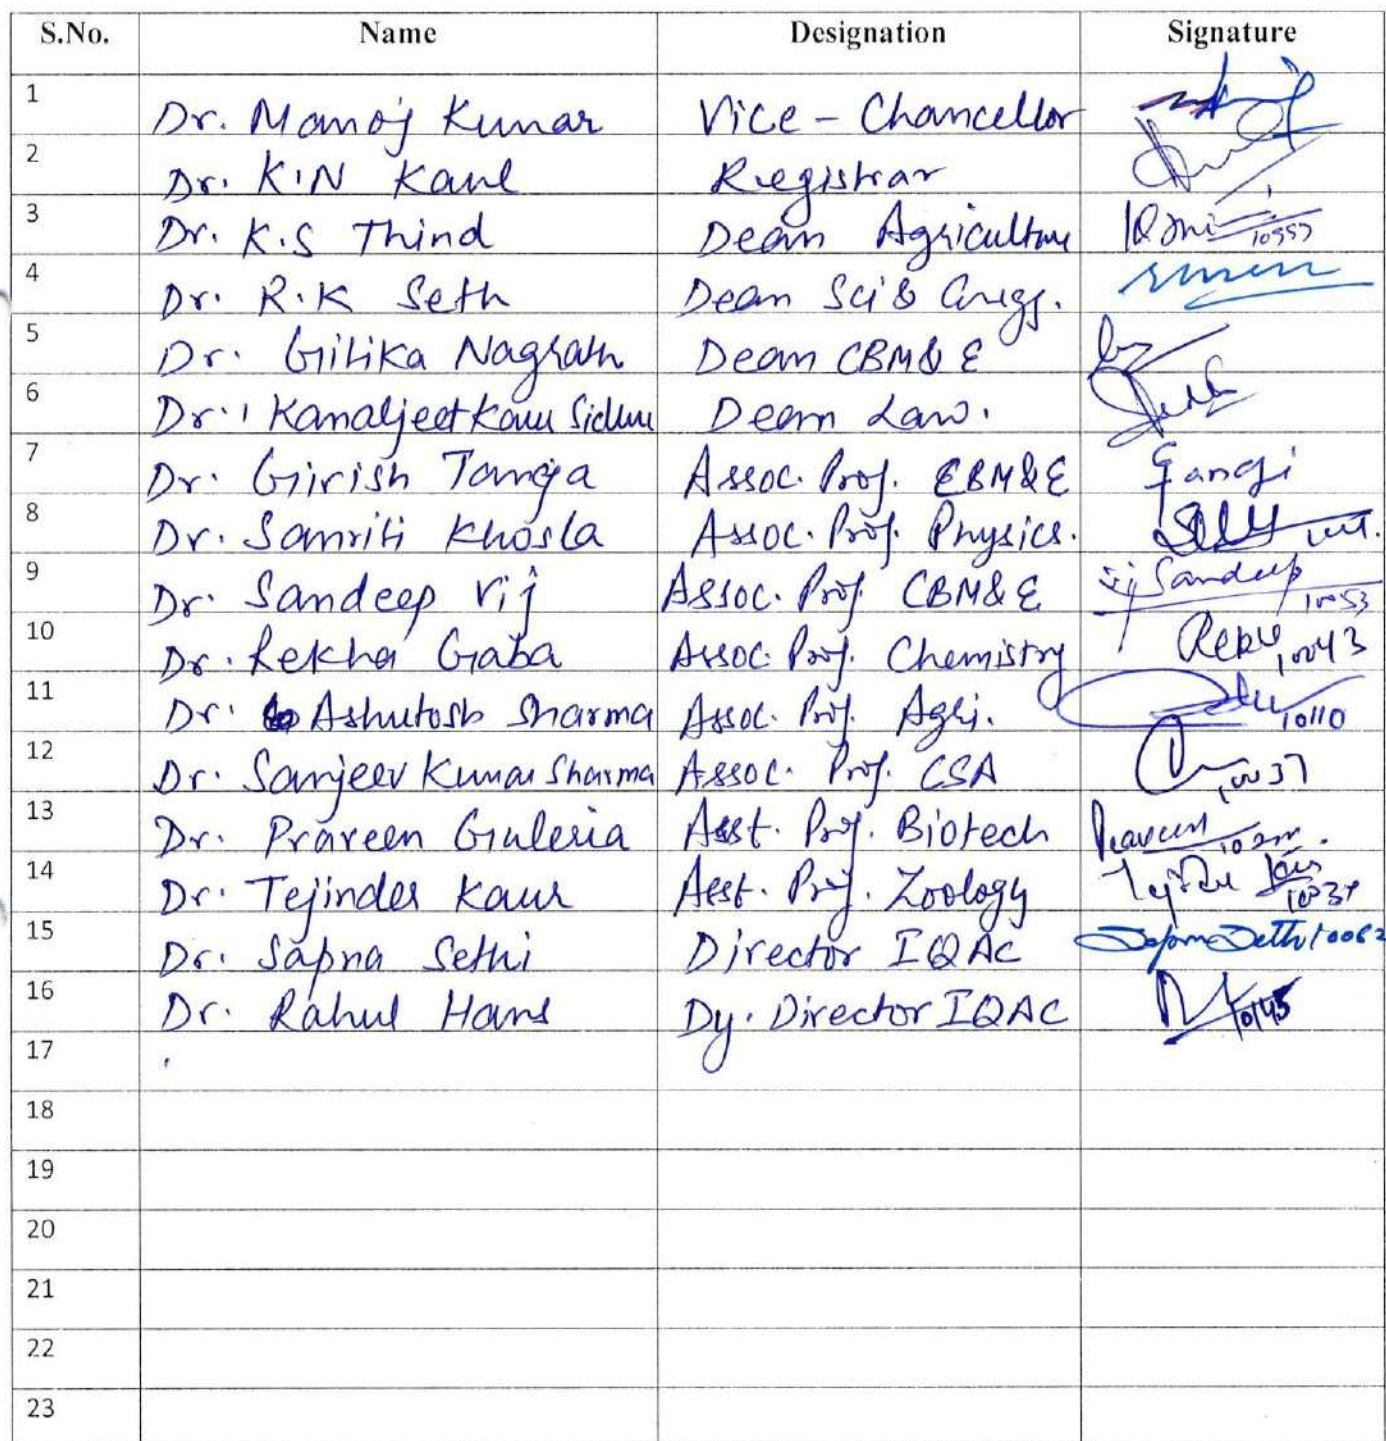 S.No. Name Designation Signature
1 Dr. Manoj Kumar Vice - Chancellor
2 Dr. K.N Kaul Registrar
3 Dr. K.S Thind Dean Agriculture 10557
4 Dr. R.K Seth Dean Sci & Engg.
5 Dr. Gitika Nagrath Dean CBM& E
6 Dr. Kamaljeet Kaur Sidhu Dean Law.
7 Dr. Girish Taneja Assoc. Prof. CBM&E
8 Dr. Samriti Khosla Assoc. Prof. Physics.
9 Dr. Sandeep Vij Assoc. Prof. CBM& E Sandeep 10053
10 Dr. Rekha Gaba Assoc. Prof. Chemistry 10043
11 Dr. Ashutosh Sharma Assoc. Prof. Agri. 10110
12 Dr. Sanjeev Kumar Sharma Assoc. Prof. CSA 10037
13 Dr. Praveen Guleria Asst. Prof. Biotech Praveen
14 Dr. Tejinder Kaur Asst. Prof. Zoology
15 Dr. Sapna Sethi Director IQAC Sapna Sethi 10062
16 Dr. Rahul Hans Dy. Director IQAC 10145
17
18
19
20
21
22
23